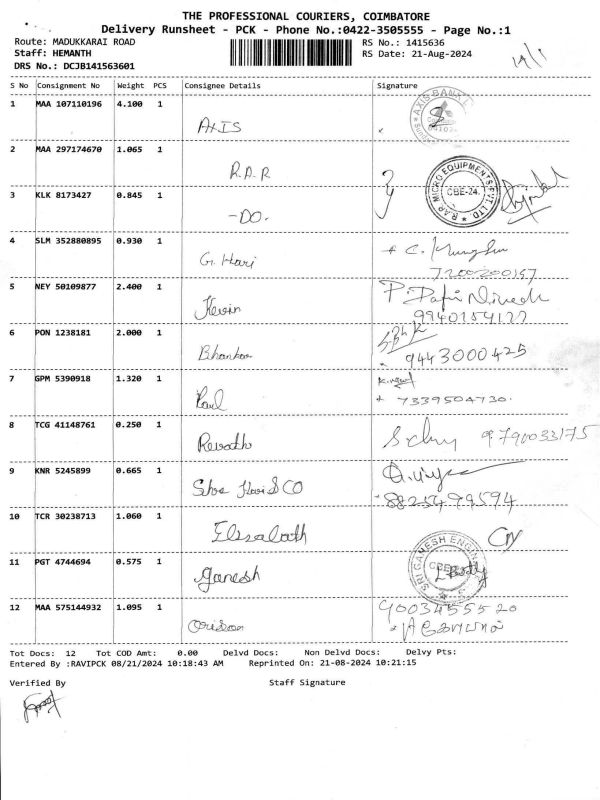 THE PROFESSIONAL COURIERS, COIMBATORE
Delivery Runsheet - PCK - Phone No.:0422-3505555 - Page No.:1
Route: MADUKKARAI ROAD RS No.: 1415636
Staff: HEMANTH RS Date: 21-Aug-2024
DRS No.: DCJB141563601
S No Consignment No Weight PCS Consignee Details Signature
1 MAA 107110196 4.100 1 AXIS AXIS BANK
2 MAA 297174670 1.065 1 R.A.R R.A.R MICRO EQUIPMENTS PVT. LTD CBE-24.
3 KLK 8173427 0.845 1 -DO.
4 SLM 352880895 0.930 1 G. Hari
7200200157
5 NEY 50109877 2.400 1 Kevin
9940154177
6 PON 1238181 2.000 1 9443000425
7 GPM 5390918 1.320 1 Paul
7339504730.
8 TCG 41148761 0.250 1 Revathi 9790033175
9 KNR 5245899 0.665 1 Hari & CO
8825499594
10 TCR 30238713 1.060 1
11 PGT 4744694 0.575 1 Ganesh SRI GANESH ENGIN
12 MAA 575144932 1.095 1 9003455520
Tot Docs: 12 Tot COD Amt: 0.00 Delvd Docs: Non Delvd Docs: Delvy Pts:
Entered By :RAVIPCK 08/21/2024 10:18:43 AM Reprinted On: 21-08-2024 10:21:15
Verified By Staff Signature